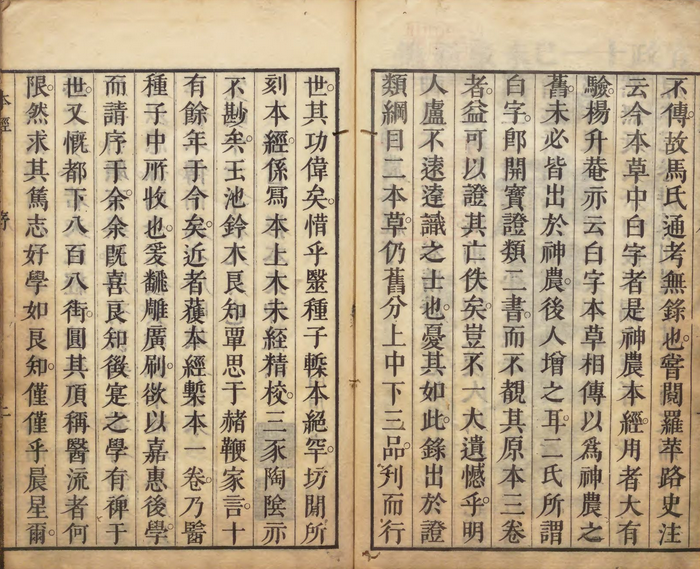 不傳故馬氏通考無錄也。嘗閱羅苹路史注
云今本草中白字者是神農本經用者大有
驗。楊升菴亦云白字本草相傳以爲神農之
舊未必皆出於神農。後人增之耳。二氏所謂
白字。卽開寶證類二書。而不覩其原本三卷
者。益可以證其亡佚矣。豈不一大遺憾乎明
人盧不遠達識之士也。憂其如此。錄出於證
類綱目二本草。仍舊分上中下三品。刋而行
世。其功偉矣。惜乎毉種子槧本絕罕。坊閒所
刻本經。係寫本上木未經精校。三豕陶陰亦
不尠矣。玉池鈴木良知覃思于赭鞭家言。十
有餘年于今矣。近者蒦本經槧本一卷。乃毉
種子中所收也。爰飜雕廣刷欲以嘉惠後學
而請序于余。余旣喜良知後寔之學有裨于
世。又慨都下八百八街。圓其頂稱醫流者何
限。然求其篤志好學如良知。僅僅乎晨星爾。
本經 序